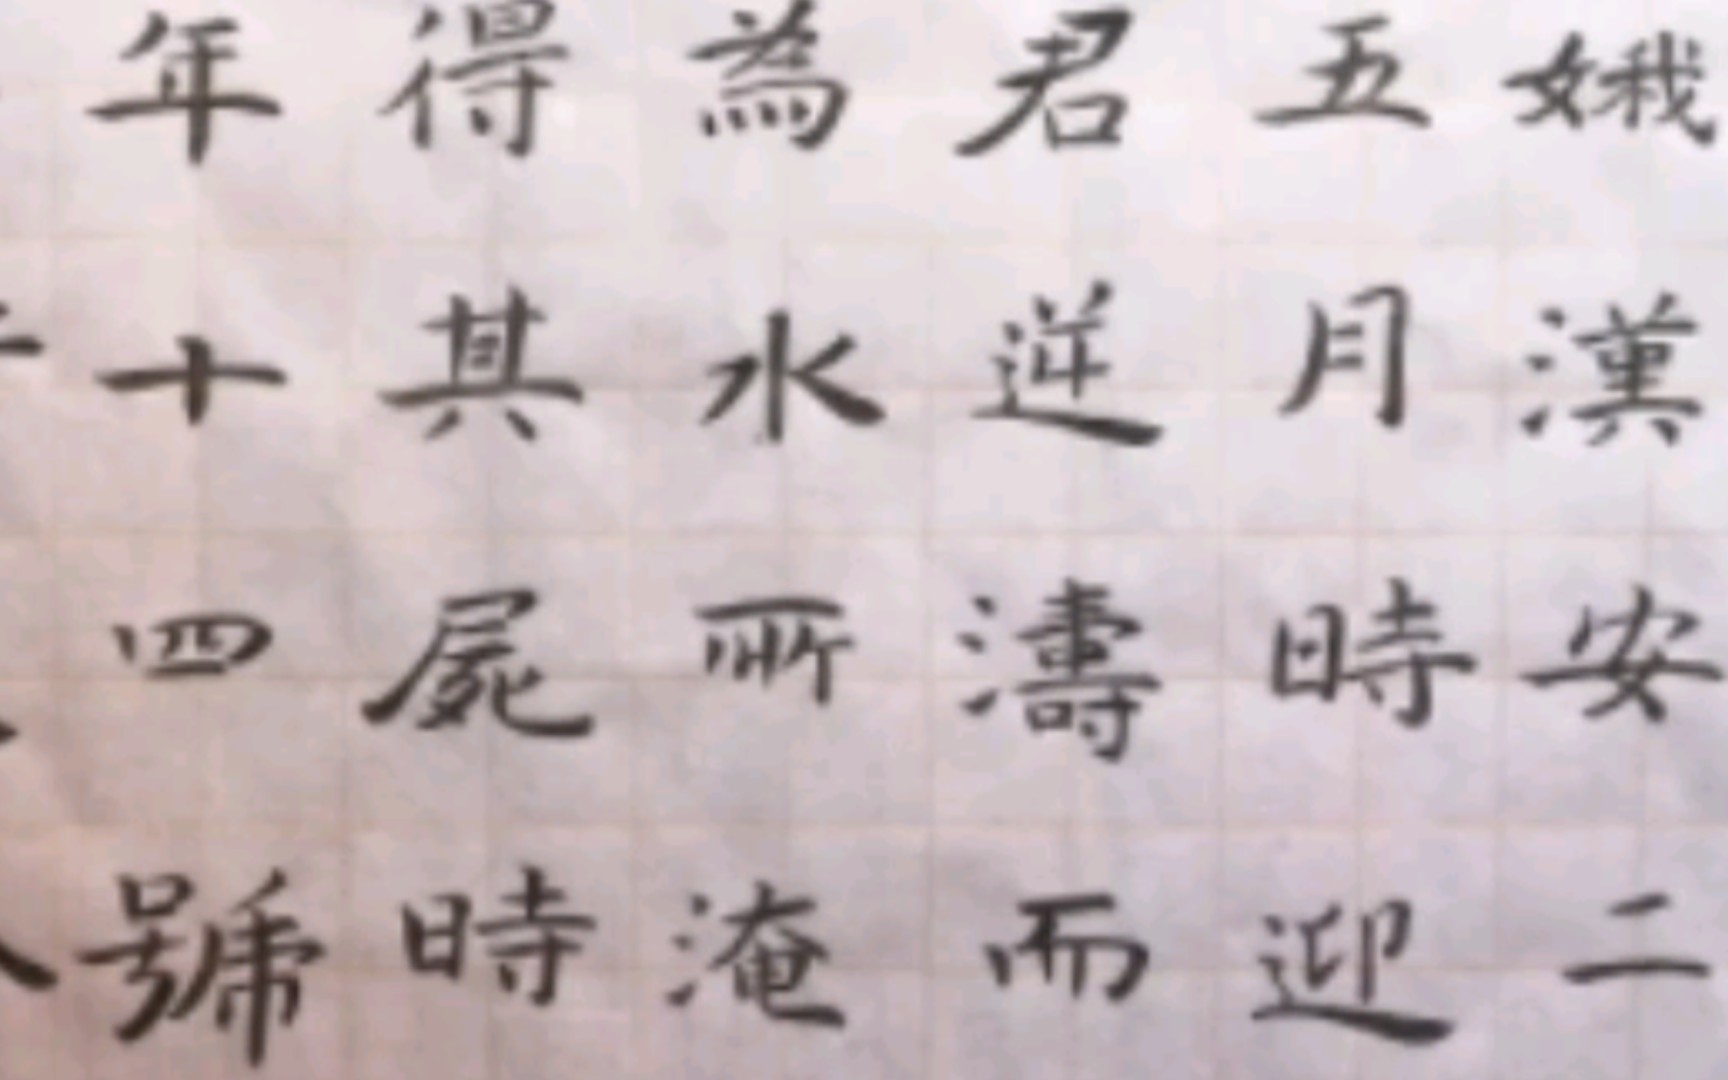 娥漢安二
五月時迎
君逆濤而
為水所淹
得其屍時
年十四號